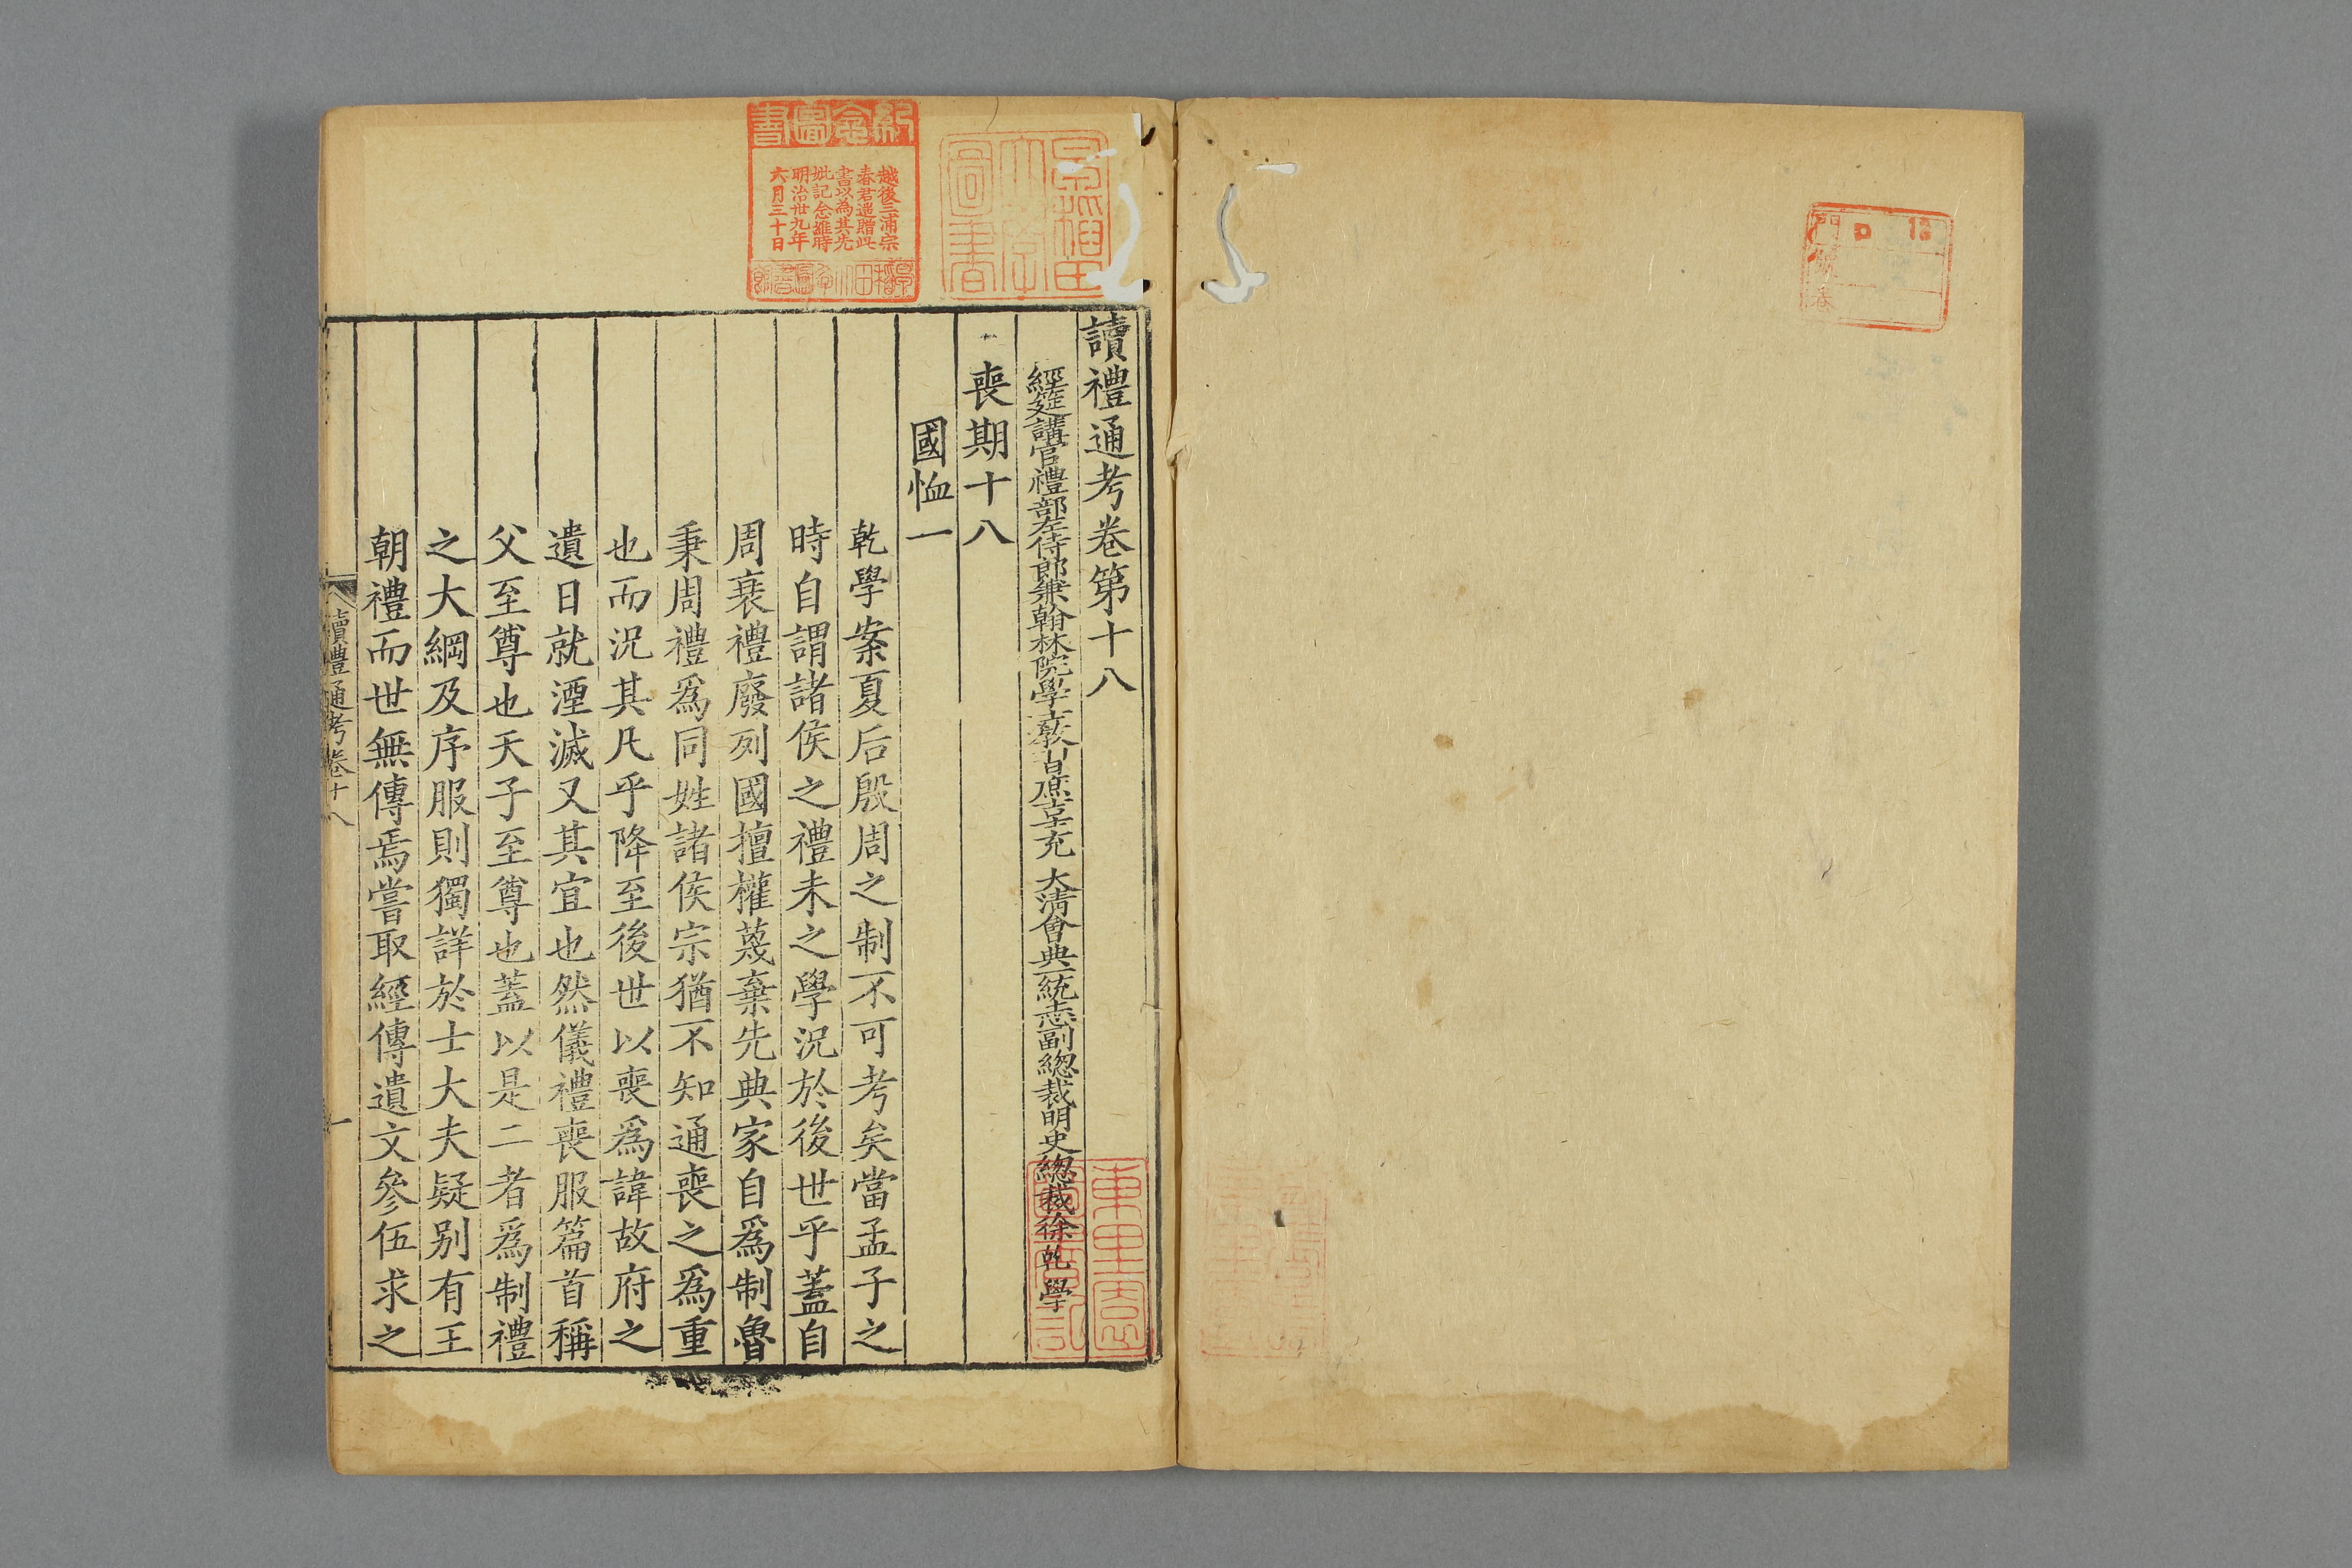 讀禮通考卷第十八
經筵講官禮部左侍郎兼翰林院學士教習庶吉士充 大清會典一統志副總裁明史總裁徐乾學
喪期十八
國恤一
乾學案夏后殷周之制不可考矣當孟子之
時自謂諸侯之禮未之學況於後世乎蓋自
周衰禮廢列國擅權蔑棄先典家自爲制魯
秉周禮爲同姓諸侯宗猶不知通喪之爲重
也而況其凡乎降至後世以喪爲諱故府之
遺日就湮滅又其宜也然儀禮喪服篇首稱
父至尊也天子至尊也蓋以是二者爲制禮
之大綱及序服則獨詳於士大夫疑别有王
朝禮而世無傳焉嘗取經傳遺文參伍求之
讀禮通考卷十八
一
紀念圖書
越後三浦宗
春君遥贈此
書以為其先
妣記念維時
明治卅九年
六月三十日
早稲田大學圖書
門
號
卷